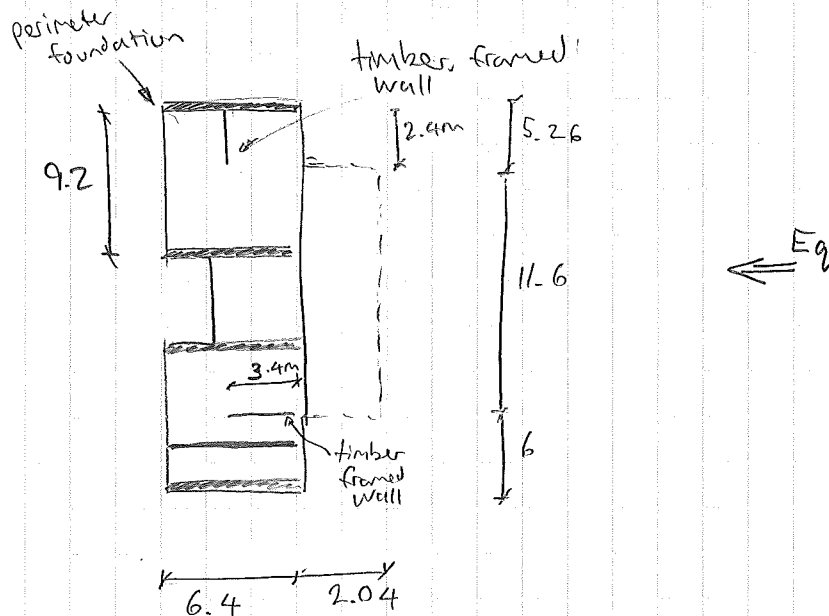 perimeter
foundation
timber framed
wall
2.4m
5.26
9.2
Eq
11.6
3.4m
timber
framed
wall
6
6.4
2.04